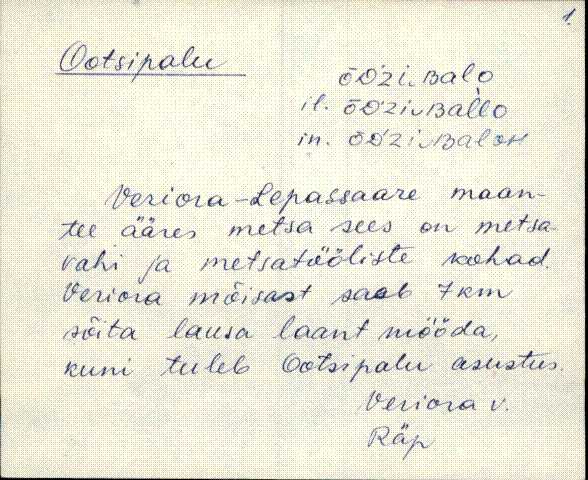 1.
Ootsipalu
ōᴅ́zi.ʙalo
il. ōᴅ́zi.ʙàllo
in. ōᴅ́zi.ʙalon
Veriora-Lepassaare maan-
tee ääres metsa sees on metsa-
vahi ja metsatööliste kohad.
Veriora mõisast saab 7 km
sõita lausa laant mööda,
kuni tuleb Ootsipalu asustus.
Veriora v.
Räp